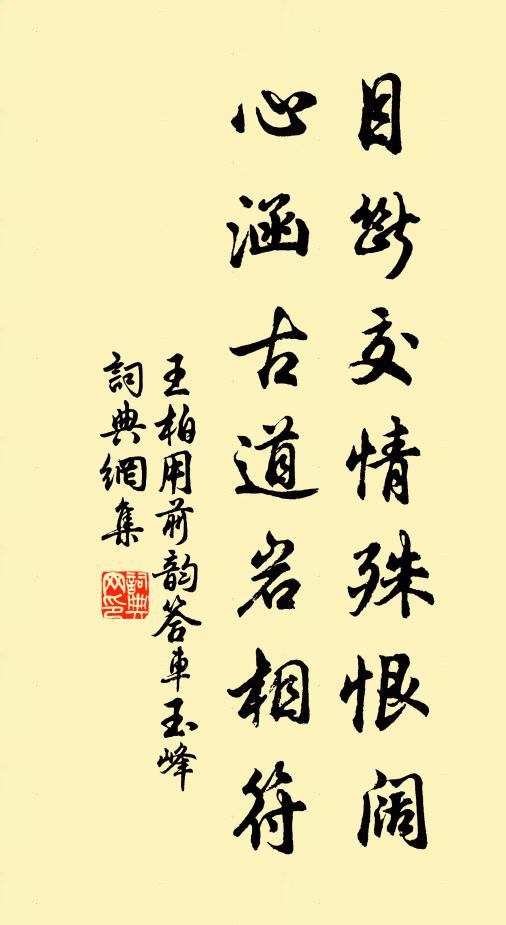 目断交情殊恨阔
心涵古道岩相符
王柏用前韵答车玉峰
詞典網集
詞典網印